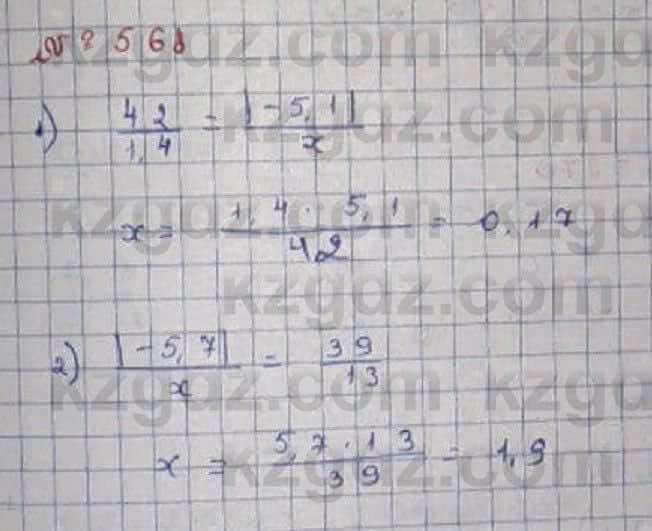 № 568
kzgdz.com kzgdz.com
1) 42/1,4 = |-5,1|/x
x = 1,4 · 5,1/42 = 0,17
kzgdz.com kzgdz.com
kzgdz.com
2) |-5,7|/x = 39/13
kzgdz.com kzgdz.com
x = 5,7 · 13/39 = 1,9
kzgdz.com